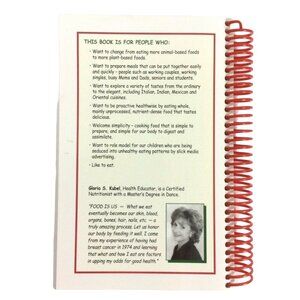 THIS BOOK IS FOR PEOPLE WHO:
· Want to change from eating more animal-based foods
to more plant-based foods.
· Want to prepare meals that can be put together easily
and quickly - people such as working couples, working
singles, busy Moms and Dads, seniors and students.
· Want to explore a variety of tastes from the ordinary
to the elegant, including Italian, Indian, Mexican and
Oriental cuisines.
· Want to be proactive healthwise by eating whole,
mainly unprocessed, nutrient-dense food that tastes
delicious.
· Welcome simplicity - cooking food that is simple to
prepare, and simple for our body to digest and
assimilate.
· Want to role model for our children who are being
seduced into unhealthy eating patterns by slick media
advertising.
· Like to eat.
Gloria S. Kubel, Health Educator, is a Certified
Nutritionist with a Master's Degree in Dance.
"FOOD IS US — What we eat
eventually becomes our skin, blood,
organs, bones, hair, nails, etc — a
truly amazing process. Let us honor
our body by feeding it well. I come
from my experience of having had
breast cancer in 1974 and learning
that what and how I eat are factors
in upping my odds for good health."